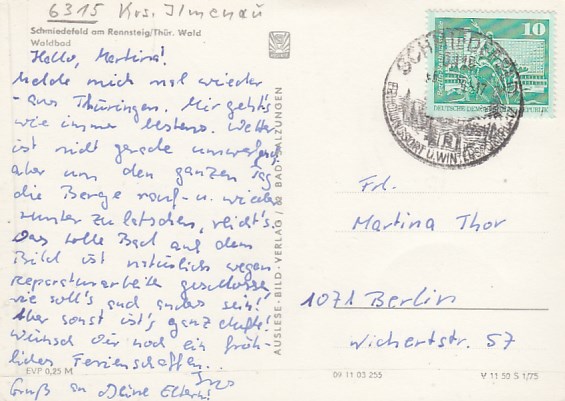 6315 Krs. Ilmenau
Schmiedefeld am Rennsteig/Thür. Wald
Waldbad
Hallo, Martina!
Melde mich mal wieder
aus Thüringen. Mir geht's
wie immer bestens. Wetter
ist nicht gerade umwerfend
aber um den ganzen Tag
die Berge rauf- u. wieder
runter zu latschen, reicht's
Das tolle Bad auf dem
Bild ist natürlich wegen
Reparaturarbeiten geschlossen
wie soll's auch anders sein!
Aber sonst ist's ganz dufte!
Wünsch Dir noch ein fröh-
liches Ferienschaffen..
Gruß an Deine Eltern!
EVP 0,25 M
AUSLESE-BILD-VERLAG / 62 BAD SALZUNGEN
10
DEUTSCHE DEMOKRATISCHE REPUBLIK
SCHMIEDEFELD
ERHOLUNGSORT U. WINTERSPORTPLATZ
Frl.
Martina Thor
1071 Berlin
Wichertstr. 57
09 11 03 255
V 11 50 S 1/75